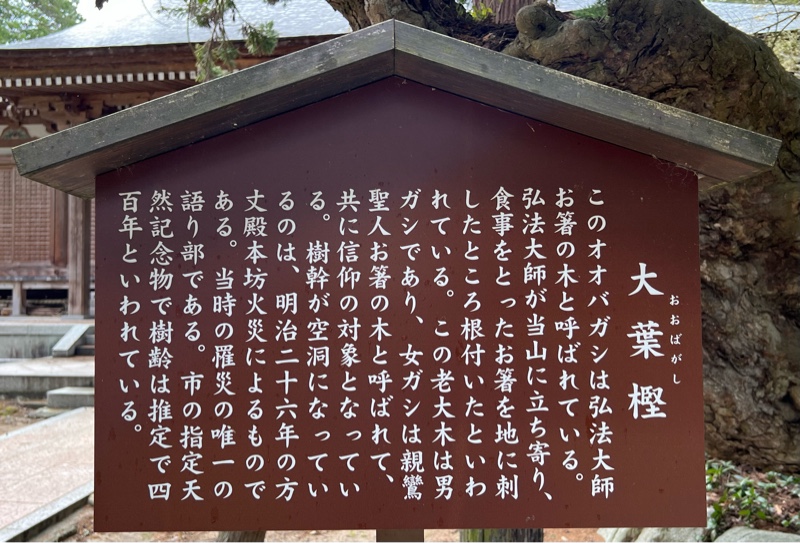 大葉樫
おおばがし
このオオバガシは弘法大師
お箸の木と呼ばれている。
弘法大師が当山に立ち寄り、
食事をとったお箸を地に刺
したところ根付いたといわ
れている。この老大木は男
ガシであり、女ガシは親鸞
聖人お箸の木と呼ばれて、
共に信仰の対象となってい
る。樹幹が空洞になってい
るのは、明治二十六年の方
丈殿本坊火災によるもので
ある。当時の罹災の唯一の
語り部である。市の指定天
然記念物で樹齢は推定で四
百年といわれている。